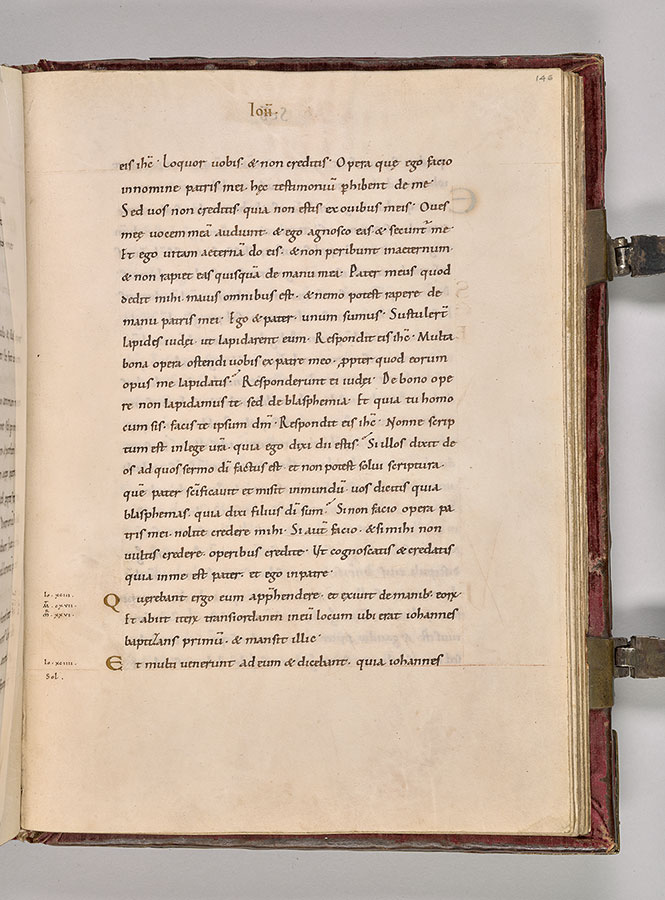 146
Ioh̄.
eis ih̄c · Loquor uobis · & non creditis · Opera quę ego facio
innomine patris mei · hęc testimoniū phibent de me ·
Sed uos non creditis · quia non estis ex ouibus meis · Oues
męę uocem meā audiunt · & ego agnosco eas & secunt̄ me ·
Et ego uitam aeternā do eis · & non peribunt inaeternum ·
& non rapiet eas quisquā de manu mea · Pater meus quod
dedit mihi · maius omnibus est · & nemo potest rapere de
manu patris mei · Ego & pater · unum sumus · Sustulert̄
lapides iudei · ut lapidarent eum · Respondit eis ih̄c · Multa
bona opera ostendi uobis ex patre meo · ꝓpter quod eorum
opus me lapidatis · Responderunt ei iudei · De bono ope
re non lapidamus te · sed de blasphemia · Et quia tu homo
cum sis · facis te ipsum dm̄ · Respondit eis ih̄c · Nonne scrip
tum est inlege ur̄a · quia ego dixi dii estis · Si illos dixit de
os ad quos sermo dī factus est · et non potest solui scriptura ·
quē pater scīficauit et misit inmundū · uos dicitis quia
blasphemas · quia dixi filius dī sum · Si non facio opera pa
tris mei · nolite credere mihi · Si aut̄ facio · & si mihi non
uultis credere · operibus credite · Ut cognoscatis & credatis
quia inme est pater · et ego inpatre ·
Io · xciii ·
m̄ · cxvii ·
m̄ · xxvi ·
Querebant ergo eum appħendere · et exiuit de manib; eoꝝ
Et abiit iteꝝ transiordanen ineū locum ubi erat iohannes
baptizans primū · & mansit illic ·
Io · xciiii ·
Sol .
Et multi uenerunt ad eum & dicebant · quia iohannes